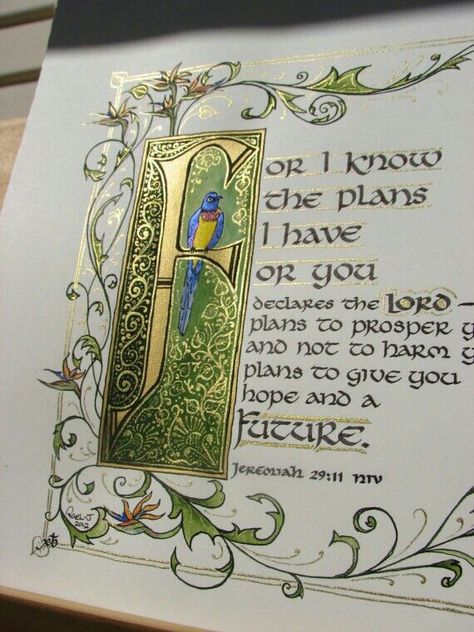 For I know
the plans
I have
or you
declares the LORD
plans to prosper y
and not to harm y
plans to give you
hope and a
Future.
Jeremiah 29:11 NIV
2012